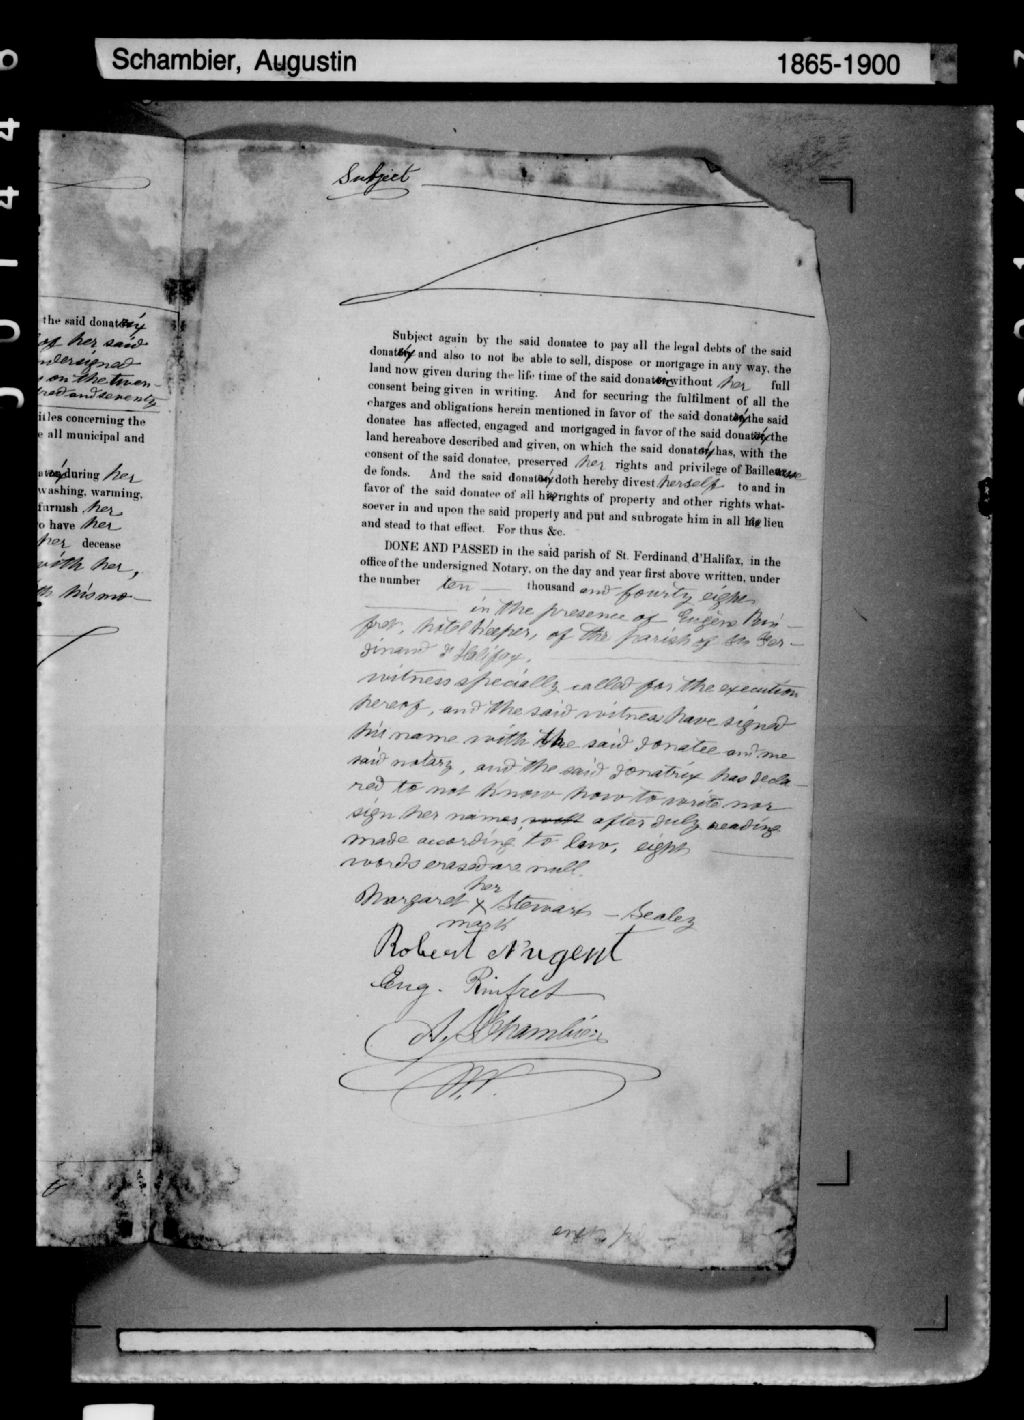 Schambier, Augustin 1865-1900
Subject
the said donatrix
of her said
undersigned
on the twen-
dred and seventy
itles concerning the
e all municipal and
during her
washing, warming,
furnish her
to have her
her decease
with her,
th his mo-
Subject again by the said donatee to pay all the legal debts of the said
donatrix and also to not be able to sell, dispose or mortgage in any way, the
land now given during the life time of the said donatrix without her full
consent being given in writing. And for securing the fulfilment of all the
charges and obligations herein mentioned in favor of the said donatrix the said
donatee has affected, engaged and mortgaged in favor of the said donatrix the
land hereabove described and given, on which the said donatrix has, with the
consent of the said donatee, preserved her rights and privilege of Bailleresse
de fonds. And the said donatrix doth hereby divest herself to and in
favor of the said donatee of all her rights of property and other rights what-
soever in and upon the said property and put and subrogate him in all her lieu
and stead to that effect. For thus &c.
DONE AND PASSED in the said parish of St. Ferdinand d'Halifax, in the
office of the undersigned Notary, on the day and year first above written, under
the number ten thousand and fourty eight
in the presence of Eugène Rin-
fret, hotel keeper, of the parish of St Fer-
dinand d'Halifax,
witness specially called for the execution
hereof, and the said witness have signed
his name with the said donatee and me
said notary, and the said donatrix has decla-
red to not know how to write nor
sign her names after duly reading
made according to law, eight
words erased are null.
her
Margaret X Stewart – Sealey
mark
Robert Nugent
Eug. Rinfret
A. Schambier
N.P.